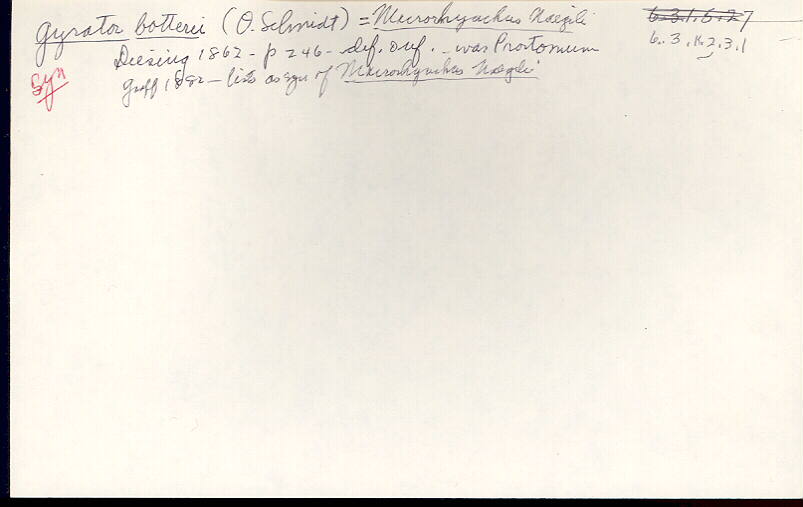 Gyrator botterii (O. Schmidt) = Macrorhynchus Naegeli
6.3.1.6.27
6.3.1.2.3.1
Diesing 1862 - p 246 - def. - was Prostomum
Syn
Graff 1882 - lists as syn of Macrorhynchus Naegeli